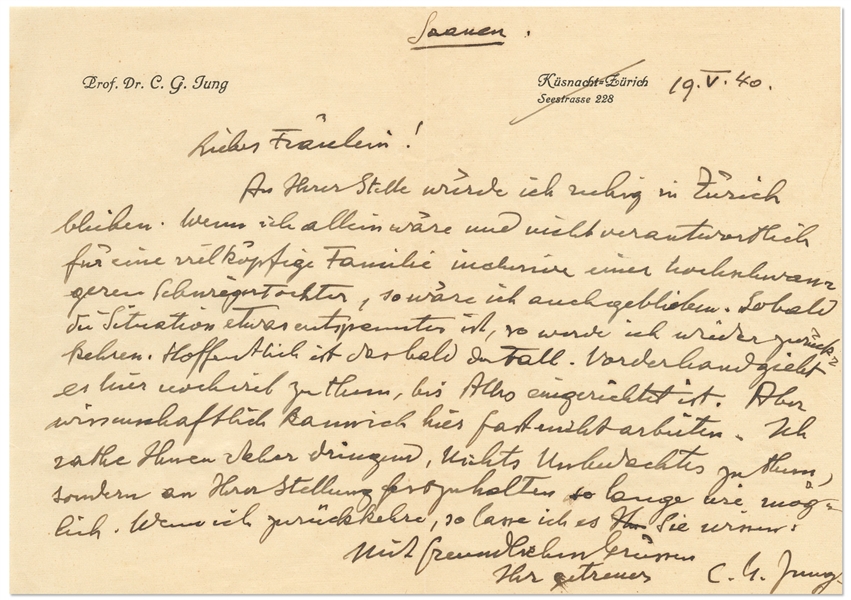 Saanen.
Prof. Dr. C. G. Jung
Küsnacht-Zürich 19.V.40.
Seestrasse 228
Liebes Fräulein!
An Ihrer Stelle würde ich ruhig in Zürich
bleiben. Wenn ich allein wäre und nicht verantwortlich
für eine vielköpfige Familie inclusive einer hochschwan-
geren Schwiegertochter, so wäre ich auch geblieben. Sobald
die Situation etwas entspannter ist, so werde ich wieder zurück-
kehren. Hoffentlich ist das bald der Fall. Vorderhand giebt
es hier noch viel zu thun, bis Alles eingerichtet ist. Aber
wissenschaftlich kann ich hier fast nicht arbeiten. Ich
rathe Ihnen daher dringend, Nichts Unbedachtes zu thun,
sondern an Ihrer Stellung festzuhalten so lange wie mög-
lich. Wenn ich zurückkehre, so lasse ich es Sie wissen.
Mit freundlichen Grüssen
Ihr getreuer C. G. Jung.